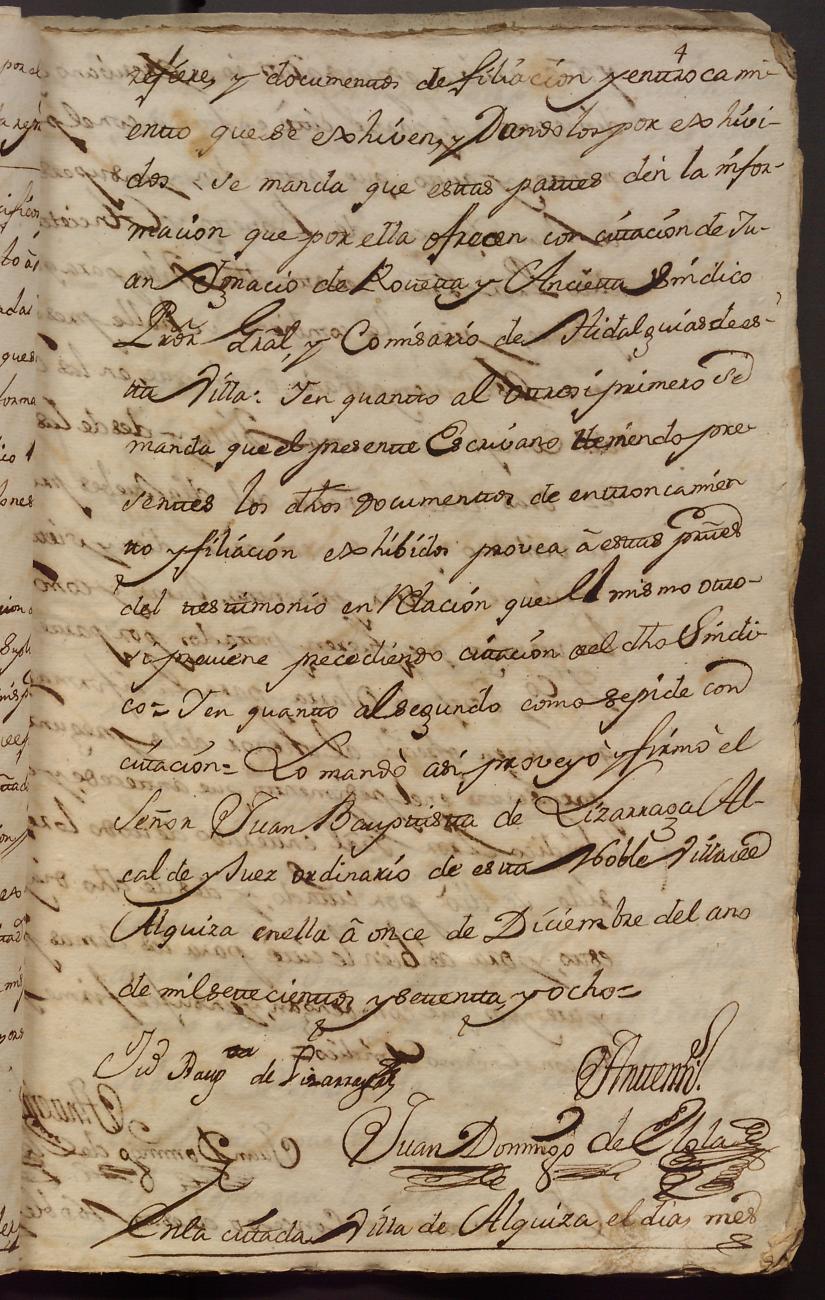 4
refiere, y documentos de filiacion y entroncami-
ento que se exhiven, y Dandolos por exhivi-
dos se manda que estas partes dèn la infor-
macion que por ella ofrecen con citacion de Ju-
an Ignacio de Roveta y Ancieta Sindico
Prõr Gral, y Comisario de Hidalguias de es-
ta Villa: Y en quanto al otrosi primero se
manda que el presente Escrivano teniendo pre-
sentes los dhos documentos de entroncamien
to y filiación exhibidos provea â estas prtes
del testimonio en Relación que el mismo otro-
si previene precediendo citación del dho Sindi-
co= Y en quanto al segundo como se pide con
citación= Lo mandò asi, proveyò y firmò el
Señor Juan Bauptista de Lizarraga Al-
calde y Juez ordinario de esta Noble Villa de
Alquiza en ella â once de Diciembre del ano
de mil setecientos y setenta, y ocho=
Jn Baupta de Lizarraga
Antemi
Juan Domingo de Olola
En la citada Villa de Alquiza, el dia, mes